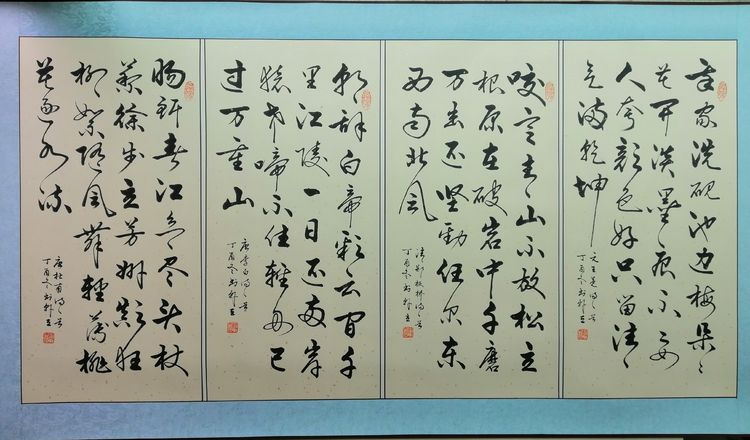 吾家洗砚池边梅朵〻
花开淡墨痕不要
人夸颜色好只留清
气满乾坤
元王冕诗一首
丁酉冬
咬定青山不放松立
根原在破岩中千磨
万击还坚劲任尔东
西南北风
清郑板桥诗一首
丁酉冬
朝辞白帝彩云间千
里江陵一日还两岸
猿声啼不住轻舟已
过万重山
唐李白诗一首
丁酉冬
肠断春江欲尽头杖
藜徐步立芳洲颠狂
柳絮随风舞轻薄桃
花逐水流
唐杜甫诗一首
丁酉冬